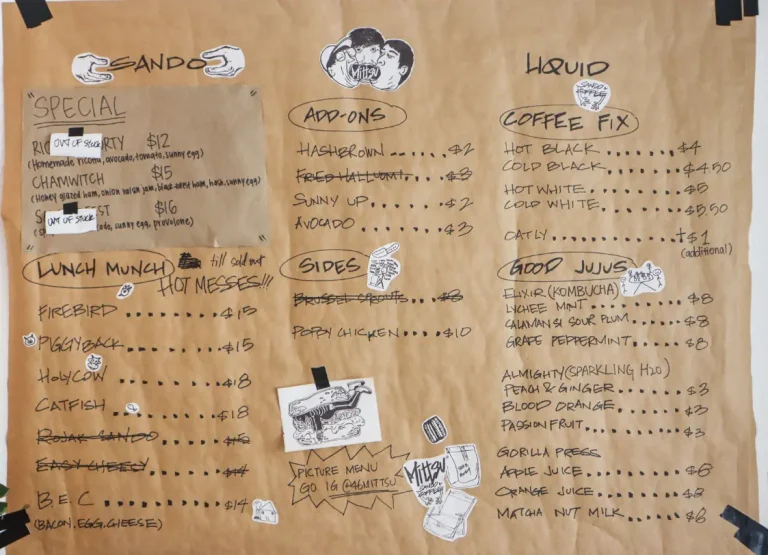 SANDO
"SPECIAL
OUT OF STOCK RTY $12
(Homemade ricotta, avocado, tomato, sunny egg)
CHAMWITCH $15
(Honey glazed ham, onion balsam jam, ham, hash, sunny egg)
OUT OF STOCK ST $16
sunny egg, provolone)
LUNCH MUNCH till sold out
HOT MESSES!!!
FIREBIRD $15
PIGGYBACK $15
HOLYCOW $18
CATFISH $18
ROJAK SANDO $15
EASY CHEESY $14
B.E.C $14
(BACON, EGG, CHEESE)
MITTSU
ADD-ONS
HASHBROWN $2
FRIED HALLOUMI $3
SUNNY UP $2
AVOCADO $3
SIDES
BRUSSEL SPROUTS $8
POPPY CHICKEN $10
PICTURE MENU
GO IG @46MITTSU
MITTSU
SANDO &
KOFFEEST
LIQUID
SANDO &
KOFFEEST
COFFEE FIX
HOT BLACK $4
COLD BLACK $4.50
HOT WHITE $5
COLD WHITE $5.50
OATLY +$1
(additional)
GOOD JUJUS
ELIXIR (KOMBUCHA)
LYCHEE MINT $8
CALAMANSI SOUR PLUM $8
GRAPE PEPPERMINT $8
ALMIGHTY (SPARKLING H2O)
PEACH & GINGER $3
BLOOD ORANGE $3
PASSIONFRUIT $3
GORILLA PRESS
APPLE JUICE $6
ORANGE JUICE
MATCHA NUT MILK $6